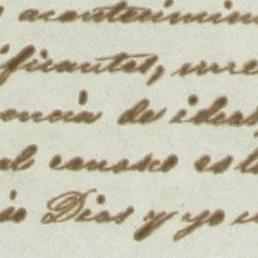 acontecimien
ificantes,
encia de ideas
al conosco es l
Dios y yo